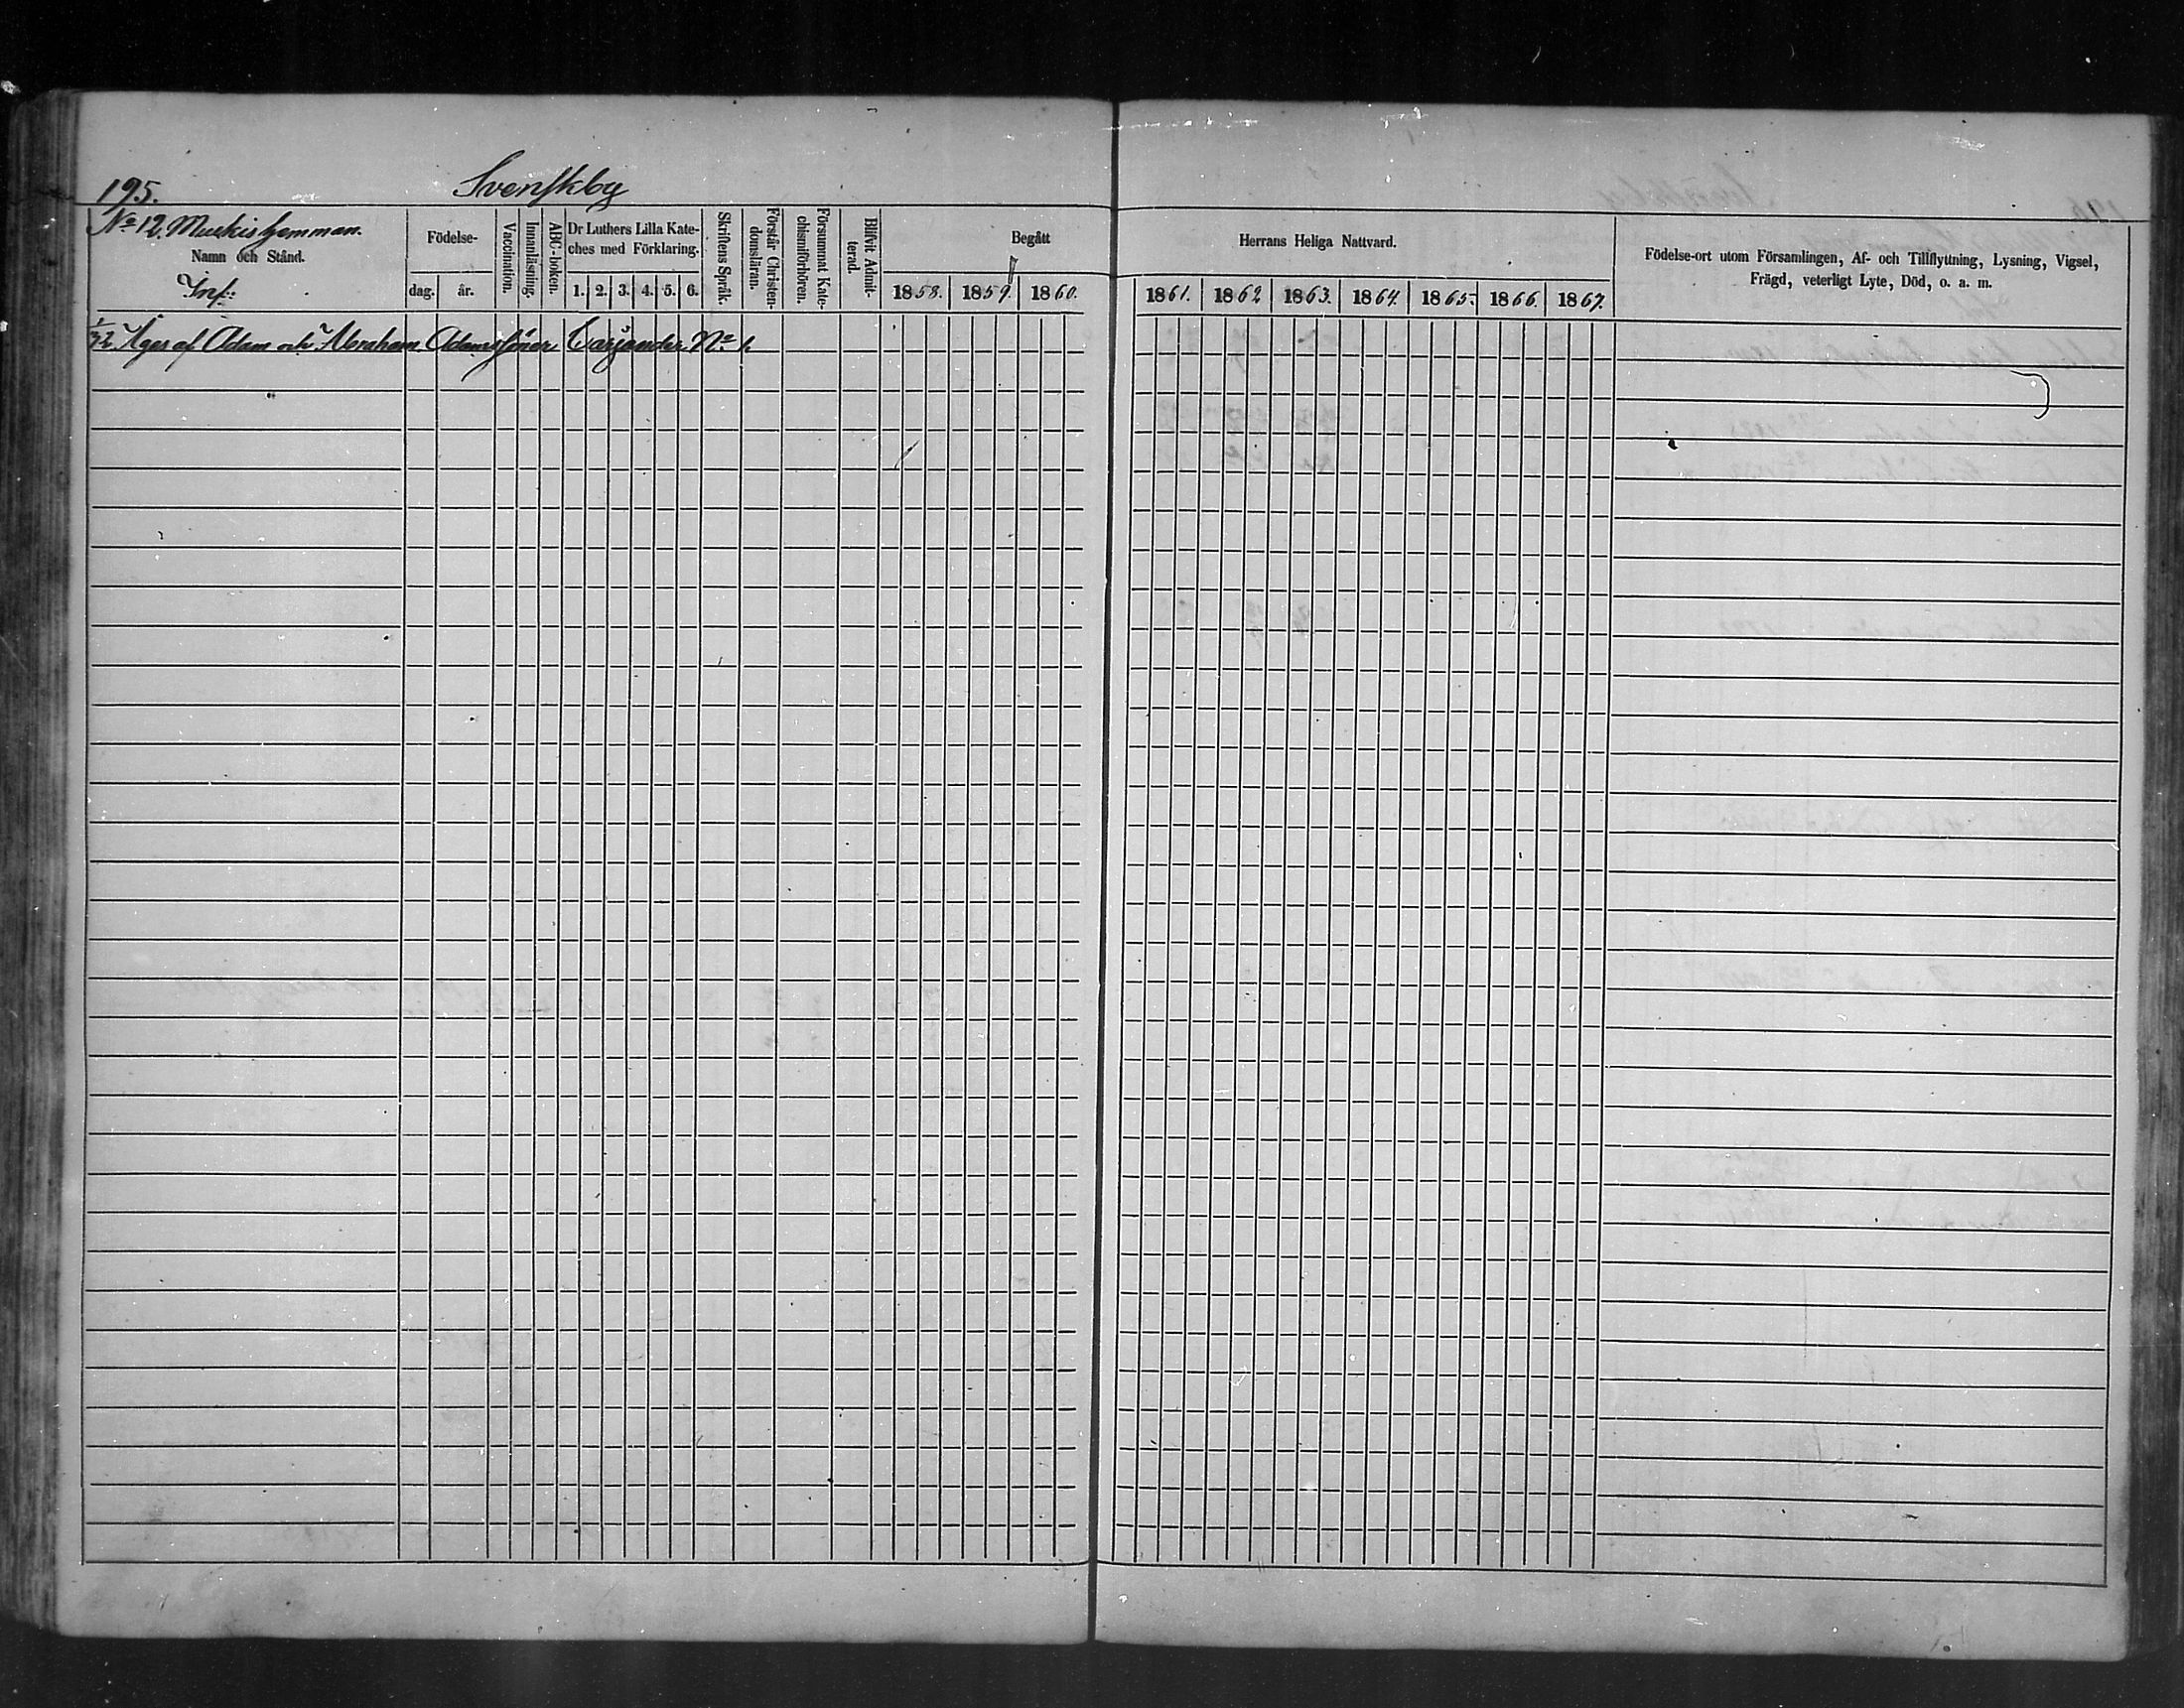 195. Svenskby
No 12. Muukis hemman.
Namn och Stånd.
Inh:
Födelse-
dag. år.
Vaccination.
Innanläsning.
ABC-boken.
Dr Luthers Lilla Kate-
ches med Förklaring.
1. 2. 3. 4. 5. 6.
Skriftens Språk.
Förstår Christen-
domsläran.
Försummat Kate-
chismiförhören.
Blifvit Admit-
terad.
Begått
1858. 1859. 1860.
Herrans Heliga Nattvard.
1861. 1862 1863. 1864. 1865. 1866. 1867.
Födelse-ort utom Församlingen, Af- och Tillflyttning, Lysning, Vigsel,
Frägd, veterligt Lyte, Död, o. a. m.
Äges af Adam och Abraham Adamssöner No 1.